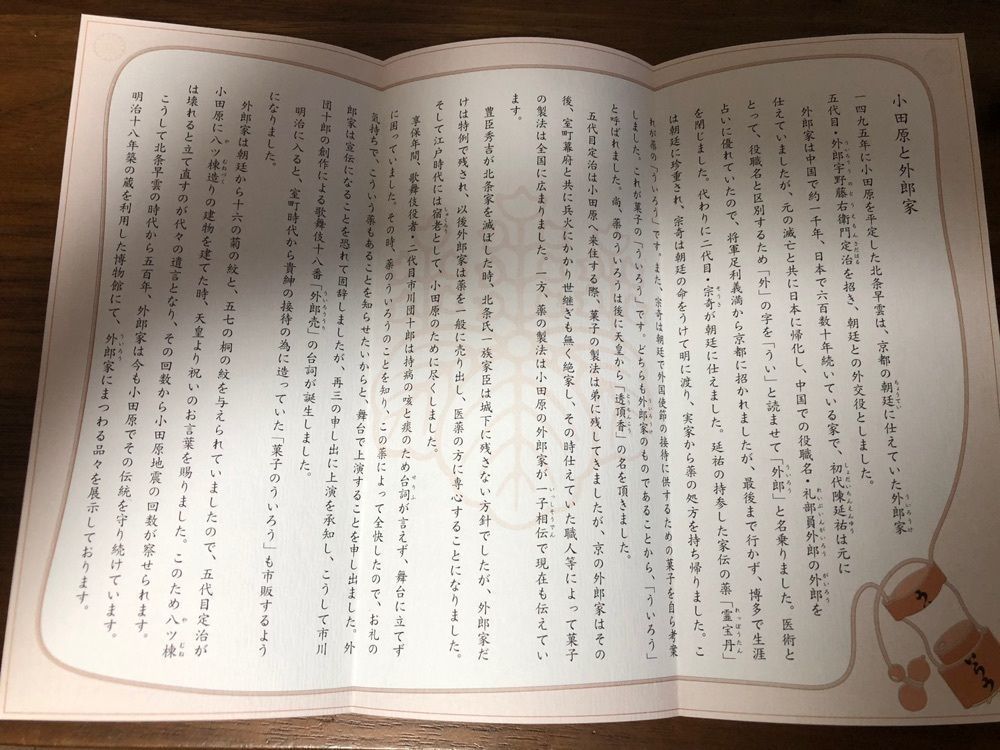 小田原と外郎家
一四九五年に小田原を平定した北条早雲は、京都の朝廷に仕えていた外郎家
五代目・外郎宇野藤右衛門定治を招き、朝廷との外交役としました。
外郎家は中国で約一千年、日本で六百数十年続いている家で、初代陳延祐は元に
仕えていましたが、元の滅亡と共に日本に帰化し、中国での役職名・礼部員外郎の外郎を
とって、役職名と区別するため「外」の字を「うい」と読ませて「外郎」と名乗りました。医術と
占いに優れていたので、将軍足利義満から京都に招かれましたが、最後まで行かず、博多で生涯
を閉じました。代わりに二代目・宗奇が朝廷に仕えました。延祐の持参した家伝の薬「霊宝丹」
は朝廷に珍重され、宗奇は朝廷の命をうけて明に渡り、実家から薬の処方を持ち帰りました。こ
れが薬の「ういろう」です。また、宗奇は朝廷で外国使節の接待に供するための菓子を自ら考案
しました。これが菓子の「ういろう」です。どちらも外郎家のものであることから、「ういろう」
と呼ばれました。尚、薬のういろうは後に天皇から「透頂香」の名を頂きました。
五代目定治は小田原へ来住する際、菓子の製法は弟に残してきましたが、京の外郎家はその
後、室町幕府と共に兵火にかかり世継ぎも無く絶家し、その時仕えていた職人等によって菓子
の製法は全国に広まりました。一方、薬の製法は小田原の外郎家が一子相伝で現在も伝えてい
ます。
豊臣秀吉が北条家を滅ぼした時、北条氏一族家臣は城下に残さない方針でしたが、外郎家だ
けは特例で残され、以後外郎家は薬を一般に売り出し、医薬の方に専心することになりました。
そして江戸時代には宿老として小田原のために尽くしました。
享保年間、歌舞伎役者・二代目市川団十郎は持病の咳と痰のため台詞が言えず、舞台に立てず
に困っていました。その時、薬のういろうのことを知り、この薬によって全快したので、お礼の
気持ちで、こういう薬もあることを知らせたいからと、舞台で上演することを申し出ました。外
郎家は宣伝になることを恐れて固辞しましたが、再三の申し出に上演を承知し、こうして市川
団十郎の創作による歌舞伎十八番「外郎売」の台詞が誕生しました。
明治に入ると、室町時代から貴紳の接待の為に造っていた「菓子のういろう」も市販するよう
になりました。
外郎家は朝廷から十六の菊の紋と、五七の桐の紋を与えられていましたので、五代目定治が
小田原に八ツ棟造りの建物を建てた時、天皇より祝いのお言葉を賜りました。このため八ツ棟
は壊れると立て直すのが代々の遺言となり、その回数から小田原地震の回数が察せられます。
こうして北条早雲の時代から五百年、外郎家は今も小田原でその伝統を守り続けています。
明治十八年築の蔵を利用した博物館にて、外郎家にまつわる品々を展示しております。